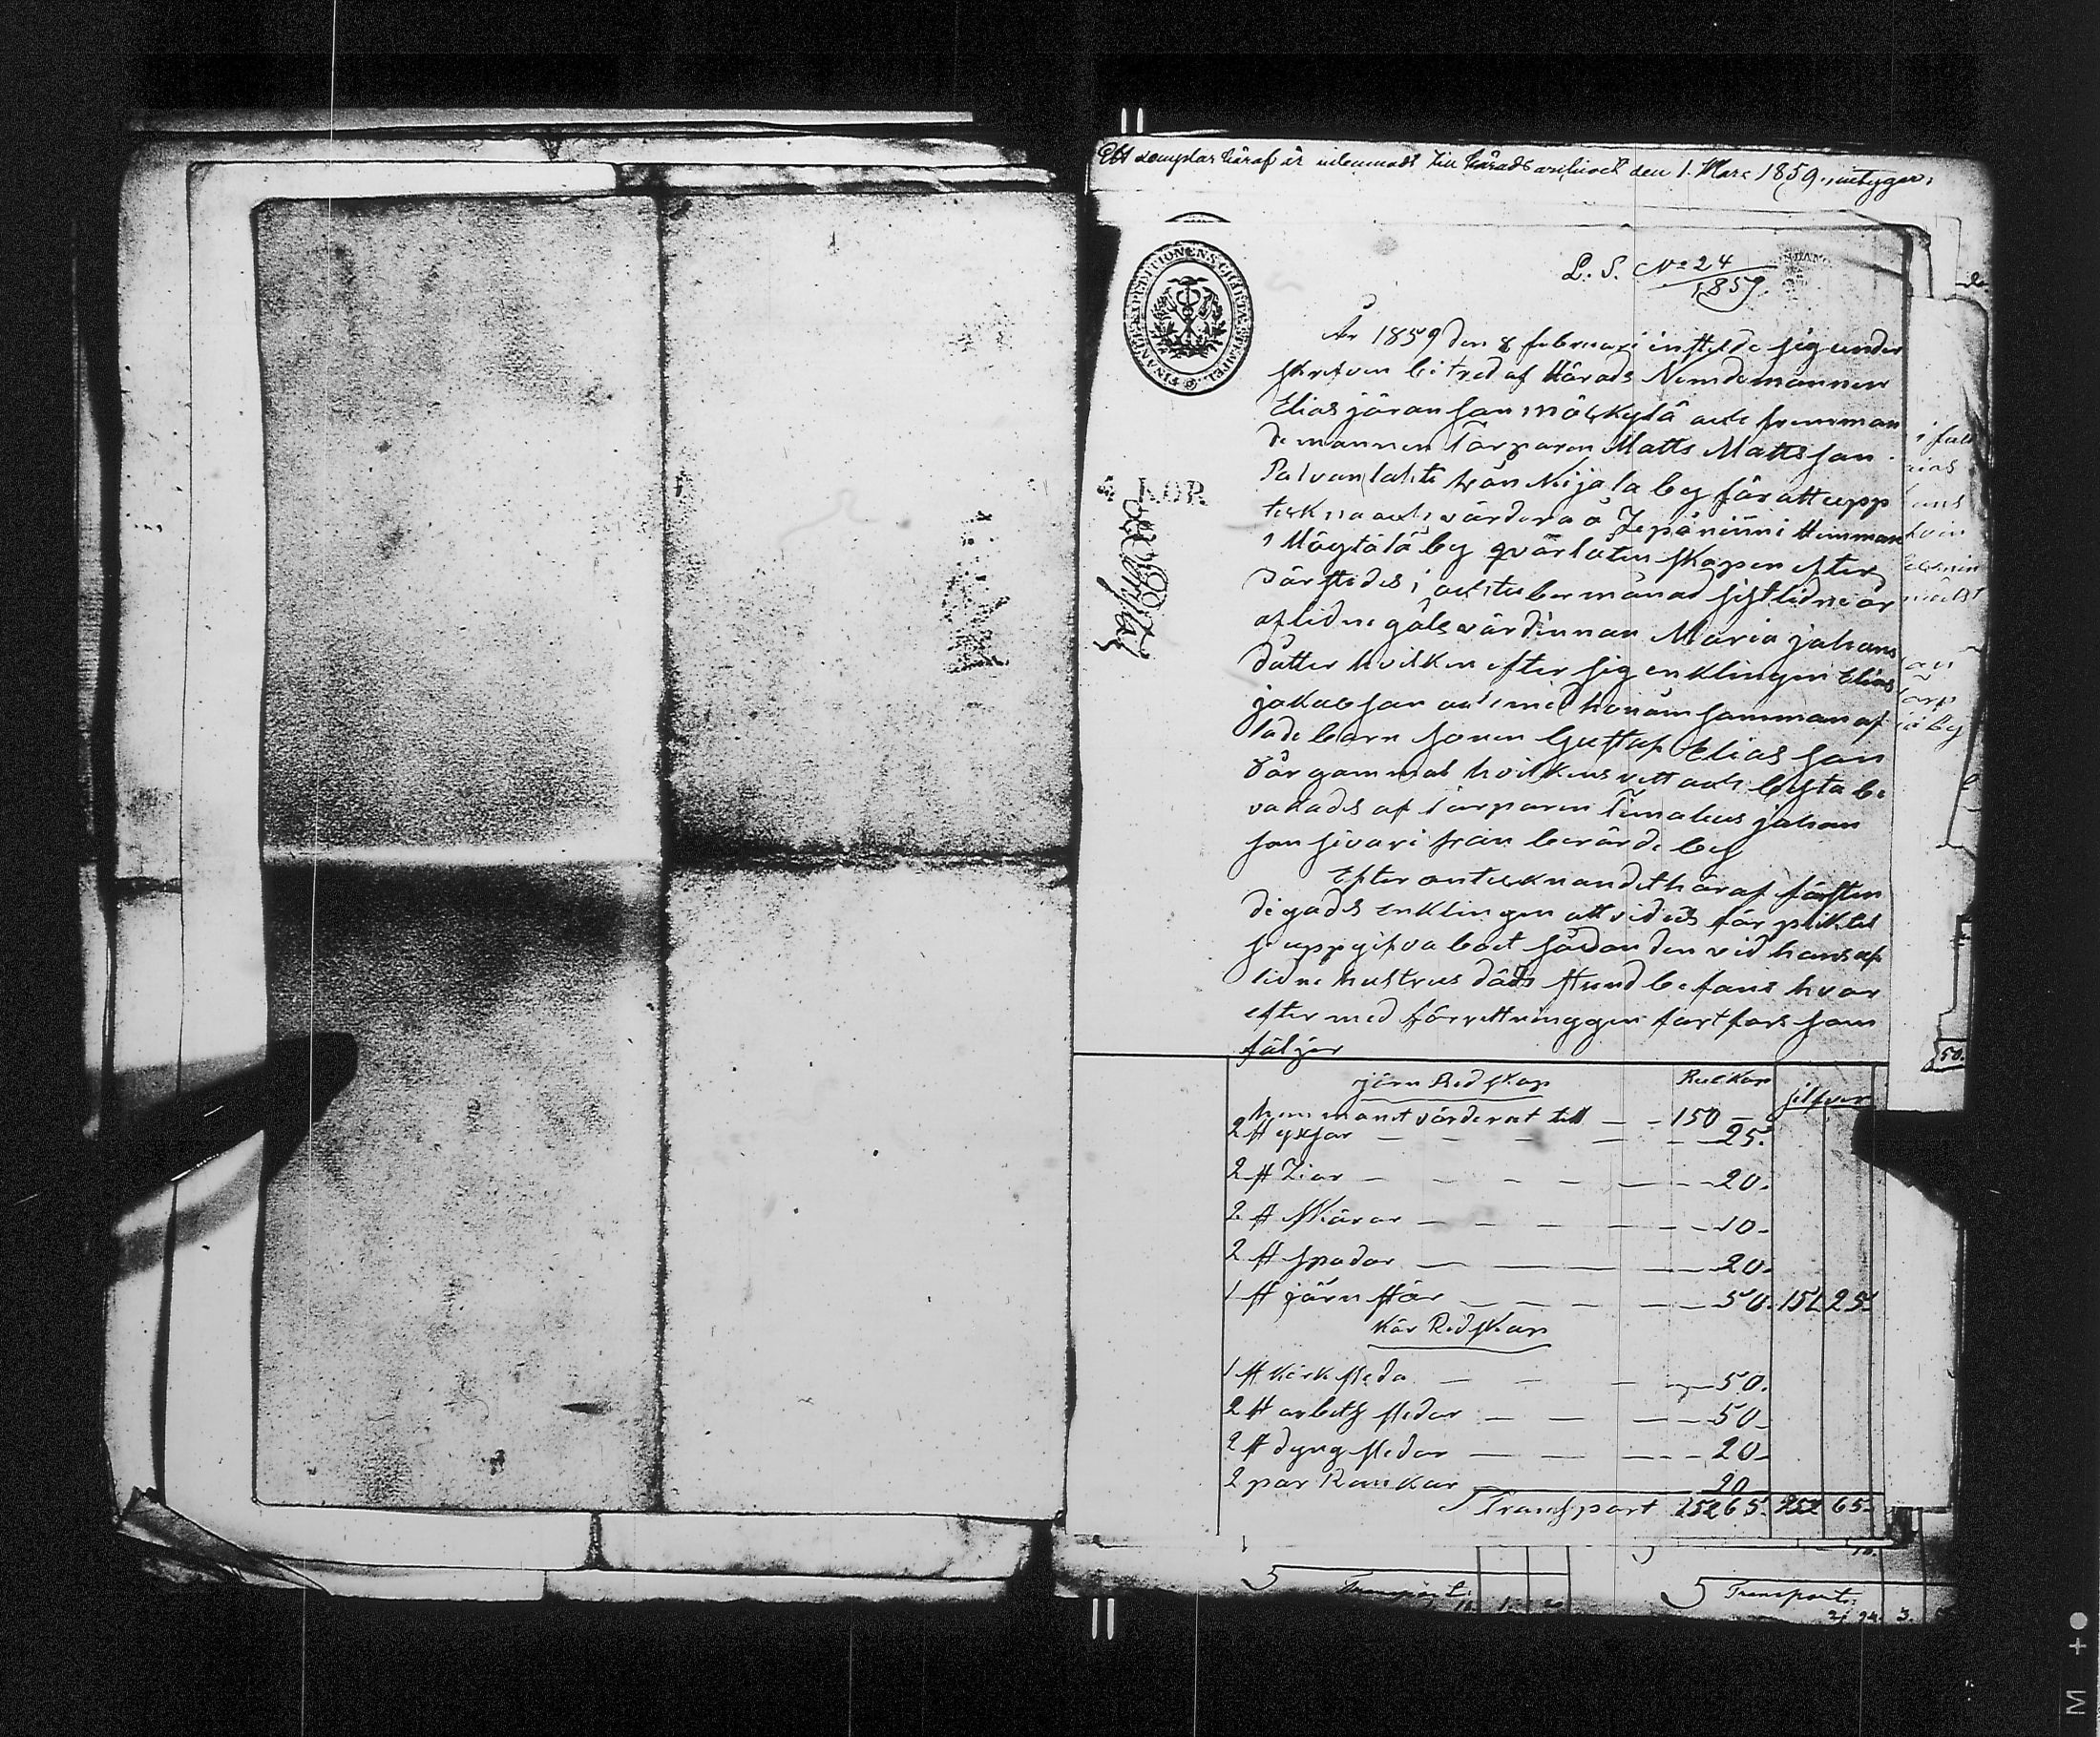 Ett exemplar häraf är inlemnadt till Härads archivet den 1. Mars 1859, intygar,
L. S. No 24
1859
FINANCE EXPEDITIONENS CHARTÆ STEMPEL
4 KOP
År 1859 den 8 februari instelde sig under
skrefven biträd af Härads Nemdemannen
Elias jöran son mäkylä ock fremman
de mannen Torparen Matts Matts son
Palvanlahti från Nijala by för att upp
tekna ock värdera å Jepäniemi Hemman
i Mäytälä by qvarlåtenskapen efter
därstedes i ocktober månad sistlidne år
aflidne gålsvärdinnan Maria johans
dotter hvilken efter sig enklingen Elias
jakobson ock med honom samman af
lade barn sonen Gustaf Elias son
8 år gammal hvilkens rett ock besta be
vakades af Torparen Timoteus johan
son sivari från berörde by
Efter anteknandet häraf försten
digades enklingen att vid eds förpliktel
se uppgifva boet sådan den vid hans af
lidne hustrus döds stund befans hvar
efter med förrettninggen fortfors som
följer
järn Redskap Rub Kop
silfver
hemmanet värderat till — 150 —
2 st yxsor — 25.
2 st Liar — 20.
2 st skäror — 10.
2 st spador — 20.
1 st järn stör — 50. 151 25.
Kör Redskap
1 st kirk sleda — 50.
2 st arbets sledar — 50
2 st dyng sledar — 20
2 par Rankar — 20
Transport 152 65. 152 65.
50.
5 Transport:
5 Transport: